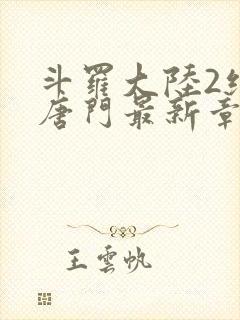 斗羅大陸2
唐門最新章
王雲帆